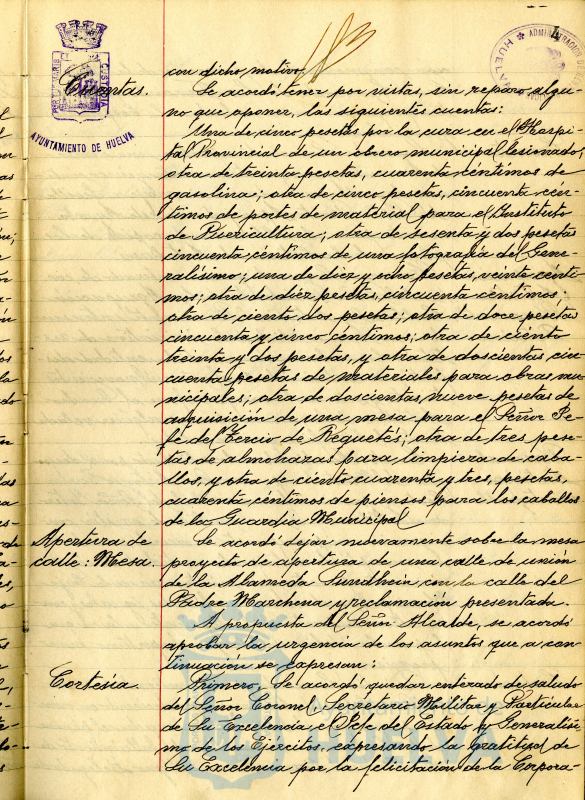 183
4
AYUNTAMIENTO DE HUELVA
con dicho motivo.
Cuentas.
Se acordó tener por vistas, sin reparo algu-
no que oponer, las siguientes cuentas:
Una de cinco pesetas por la cura en el Hospi-
tal Provincial de un obrero municipal lesionado;
otra de treinta pesetas, cuarenta céntimos de
gasolina; otra de cinco pesetas, cincuenta cén-
timos de portes de material para el Instituto
de Puericultura; otra de sesenta y dos pesetas
cincuenta céntimos de una fotografía del Gene-
ralísimo; una de diez y ocho pesetas, veinte cénti-
mos; otra de diez pesetas, cincuenta céntimos;
otra de ciento dos pesetas; otra de doce pesetas
cincuenta y cinco céntimos; otra de ciento
treinta y dos pesetas, y otra de doscientas cin-
cuenta pesetas de materiales para obras mu-
nicipales; otra de doscientas nueve pesetas de
adquisición de una mesa para el Señor Je-
fe del Tercio de Requetés; otra de tres pese-
tas de almohazas para limpieza de caba-
llos, y otra de ciento cuarenta y tres, pesetas,
cuarenta céntimos de piensos para los caballos
de la Guardia Municipal
Apertura de
calle: Mesa.
Se acordó dejar nuevamente sobre la mesa
proyecto de apertura de una calle de unión
de la Alameda Sundheim con la calle del
Padre Marchena y reclamación presentada.
A propuesta del Señor Alcalde, se acordó
aprobar la urgencia de los asuntos que a con-
tinuación se expresan:
Cortesía.
Primero. Se acordó quedar enterado de saludo
del Señor Coronel, Secretario Militar y Particular
de Su Excelencia el Jefe del Estado y Generalísi-
mo de los Ejércitos, expresando la gratitud de
Su Excelencia por la felicitación de la Corpora-
HUELVA